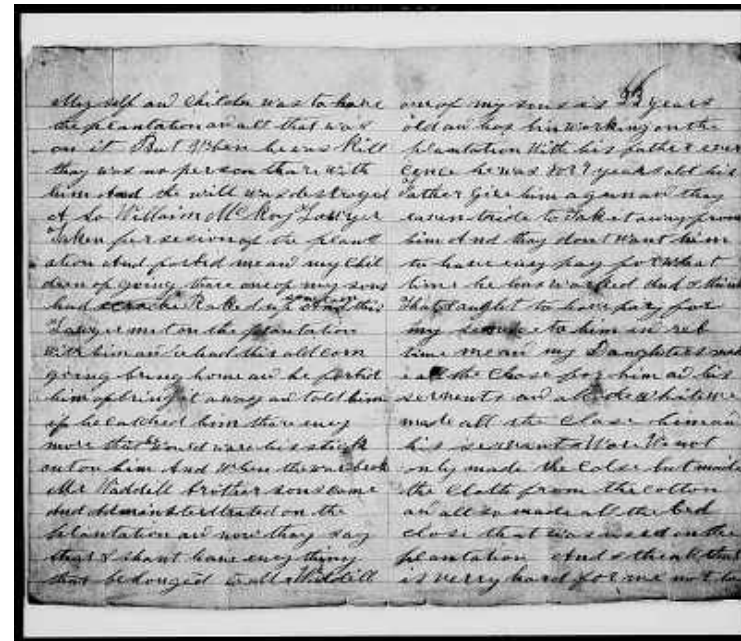 My self an Childer was to have
the plantation an all that was
on it But When he was Kill
they was no person thare with
him And the will was destroyed
& so William McKoy Lawyer
Taken persecion of the plant
ation And forbid me an my Chil
dern of going thare one of my sons
had Raked up some corn And this
Lawyer met on the plantation
with him an he had this old corn
going bring home an he forbid
him of bring it away an told him
if he catched him thare eney
more that Would ware his stick
out on him And When the war broke
Mr Waddell brother sons come
And Adminsterllrated on the
plantation an now thay say
that I shant have eney thing
that belonged Waddell
one of my sons is 22 years
old an has bin working on the
plantation With his father ever
cence he was 8 or 9 years old his
Father Give him a gun an thay
eaven tride to Take it away from
him And they dont Want him
to have eney pay for What
time he has worked And I think
That I aught to have pay for
my to him in reb
time me an my Daughters made
all the Close for him an his
servents an all the white we
made all the Close him an
his servants Wore We not
only made the Colse but maide
the Cloth from the cotton
an all so made all the bed
close that was used on the
plantation And I think that
is verry hard for me not to